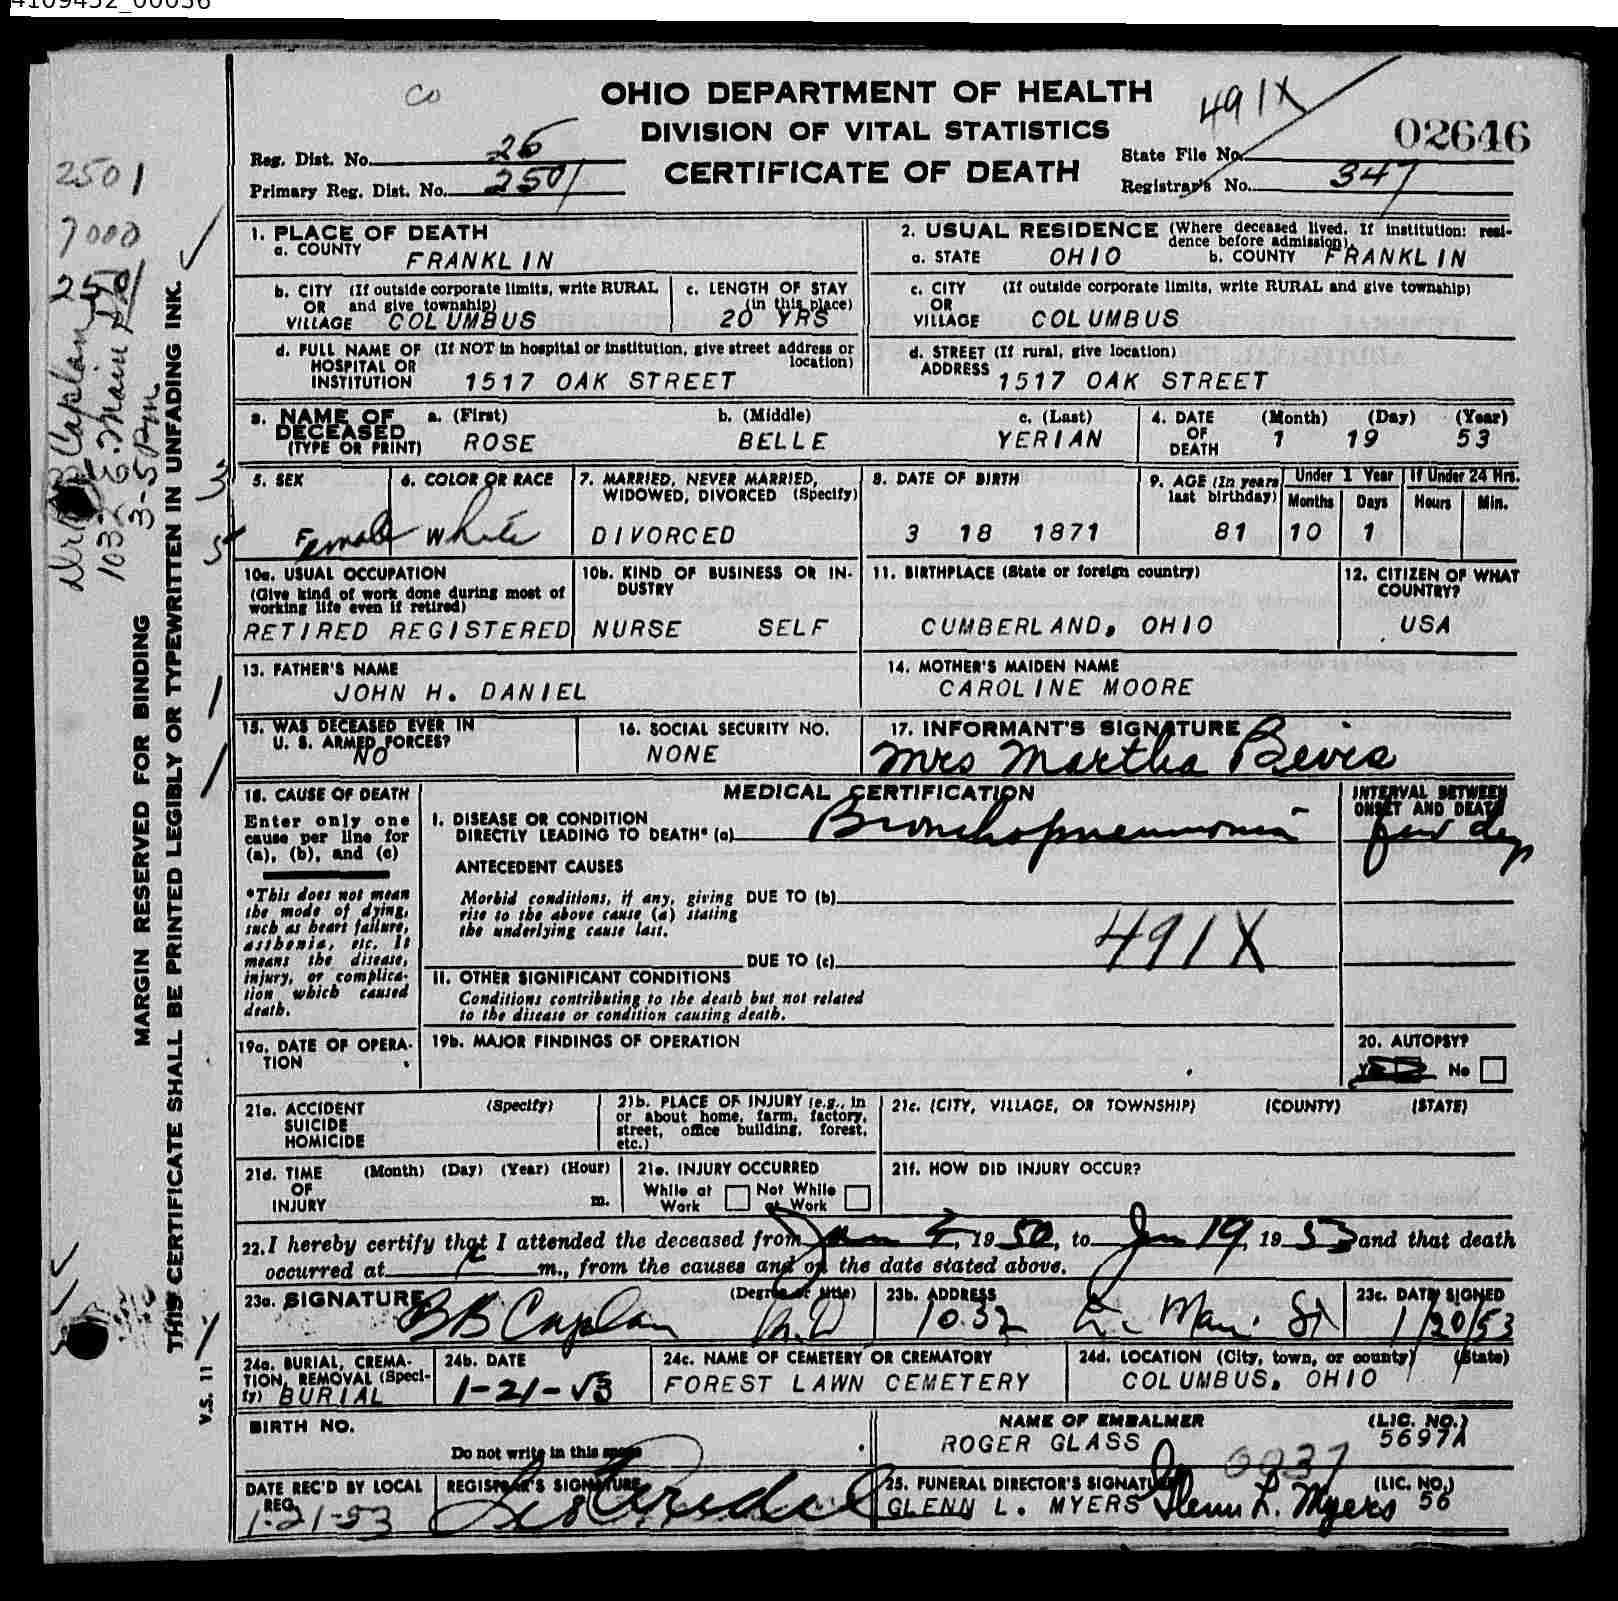 4109452_00036
CO
OHIO DEPARTMENT OF HEALTH
DIVISION OF VITAL STATISTICS
CERTIFICATE OF DEATH
491X
02646
Reg. Dist. No. 25
Primary Reg. Dist. No. 2501
State File No.
Registrar's No. 347
2501
7000
2501
Dr. B B Caplan
1032 E. Main
3-5 Pm
MARGIN RESERVED FOR BINDING
THIS CERTIFICATE SHALL BE PRINTED LEGIBLY OR TYPEWRITTEN IN UNFADING INK.
V.S. 11
1. PLACE OF DEATH
a. COUNTY FRANKLIN
2. USUAL RESIDENCE (Where deceased lived. If institution: residence before admission).
a. STATE OHIO b. COUNTY FRANKLIN
b. CITY (If outside corporate limits, write RURAL
OR and give township)
VILLAGE COLUMBUS
c. LENGTH OF STAY
(in this place)
20 YRS
c. CITY (If outside corporate limits, write RURAL and give township)
OR
VILLAGE COLUMBUS
d. FULL NAME OF (If NOT in hospital or institution, give street address or
HOSPITAL OR location)
INSTITUTION 1517 OAK STREET
d. STREET (If rural, give location)
ADDRESS 1517 OAK STREET
3. NAME OF DECEASED
(TYPE OR PRINT)
a. (First) ROSE
b. (Middle) BELLE
c. (Last) YERIAN
4. DATE OF DEATH (Month) (Day) (Year)
1 19 53
5. SEX
Female
6. COLOR OR RACE
White
7. MARRIED, NEVER MARRIED,
WIDOWED, DIVORCED (Specify)
DIVORCED
8. DATE OF BIRTH
3 18 1871
9. AGE (In years
last birthday)
81
Under 1 Year
Months Days
10 1
If Under 24 Hrs.
Hours Min.
10a. USUAL OCCUPATION
(Give kind of work done during most of
working life even if retired)
RETIRED REGISTERED
10b. KIND OF BUSINESS OR IN-
DUSTRY
NURSE SELF
11. BIRTHPLACE (State or foreign country)
CUMBERLAND, OHIO
12. CITIZEN OF WHAT
COUNTRY?
USA
13. FATHER'S NAME
JOHN H. DANIEL
14. MOTHER'S MAIDEN NAME
CAROLINE MOORE
15. WAS DECEASED EVER IN
U. S. ARMED FORCES?
NO
16. SOCIAL SECURITY NO.
NONE
17. INFORMANT'S SIGNATURE
Mrs Martha Bevis
18. CAUSE OF DEATH
Enter only one
cause per line for
(a), (b), and (c)
*This does not mean
the mode of dying,
such as heart failure,
asthenia, etc. It
means the disease,
injury, or complica-
tion which caused
death.
MEDICAL CERTIFICATION
INTERVAL BETWEEN
ONSET AND DEATH
I. DISEASE OR CONDITION
DIRECTLY LEADING TO DEATH* (a) Bronchopneumonia
few days
ANTECEDENT CAUSES
Morbid conditions, if any, giving DUE TO (b)
rise to the above cause (a) stating
the underlying cause last.
491X
DUE TO (c)
II. OTHER SIGNIFICANT CONDITIONS
Conditions contributing to the death but not related
to the disease or condition causing death.
19a. DATE OF OPERA-
TION
19b. MAJOR FINDINGS OF OPERATION
20. AUTOPSY?
No
21a. ACCIDENT (Specify)
SUICIDE
HOMICIDE
21b. PLACE OF INJURY (e.g., in
or about home, farm, factory,
street, office building, forest,
etc.)
21c. (CITY, VILLAGE, OR TOWNSHIP) (COUNTY) (STATE)
21d. TIME (Month) (Day) (Year) (Hour)
OF
INJURY m.
21e. INJURY OCCURRED
While at Work Not While at Work
21f. HOW DID INJURY OCCUR?
22. I hereby certify that I attended the deceased from 1950, to Jan 19, 1953 and that death
occurred at m., from the causes and on the date stated above.
23a. SIGNATURE (Degree or title)
B B Caplan M.D
23b. ADDRESS
1032 E. Main St
23c. DATE SIGNED
1/20/53
24a. BURIAL, CREMA-
TION, REMOVAL (Speci-
fy) BURIAL
24b. DATE
1-21-53
24c. NAME OF CEMETERY OR CREMATORY
FOREST LAWN CEMETERY
24d. LOCATION (City, town, or county) (State)
COLUMBUS, OHIO
BIRTH NO.
Do not write in this space
NAME OF EMBALMER (LIC. NO.)
ROGER GLASS 5697A
DATE REC'D BY LOCAL
REG.
1-21-53
REGISTRAR'S SIGNATURE
0037
25. FUNERAL DIRECTOR'S SIGNATURE (LIC. NO.)
GLENN L. MYERS Glenn L. Myers 56